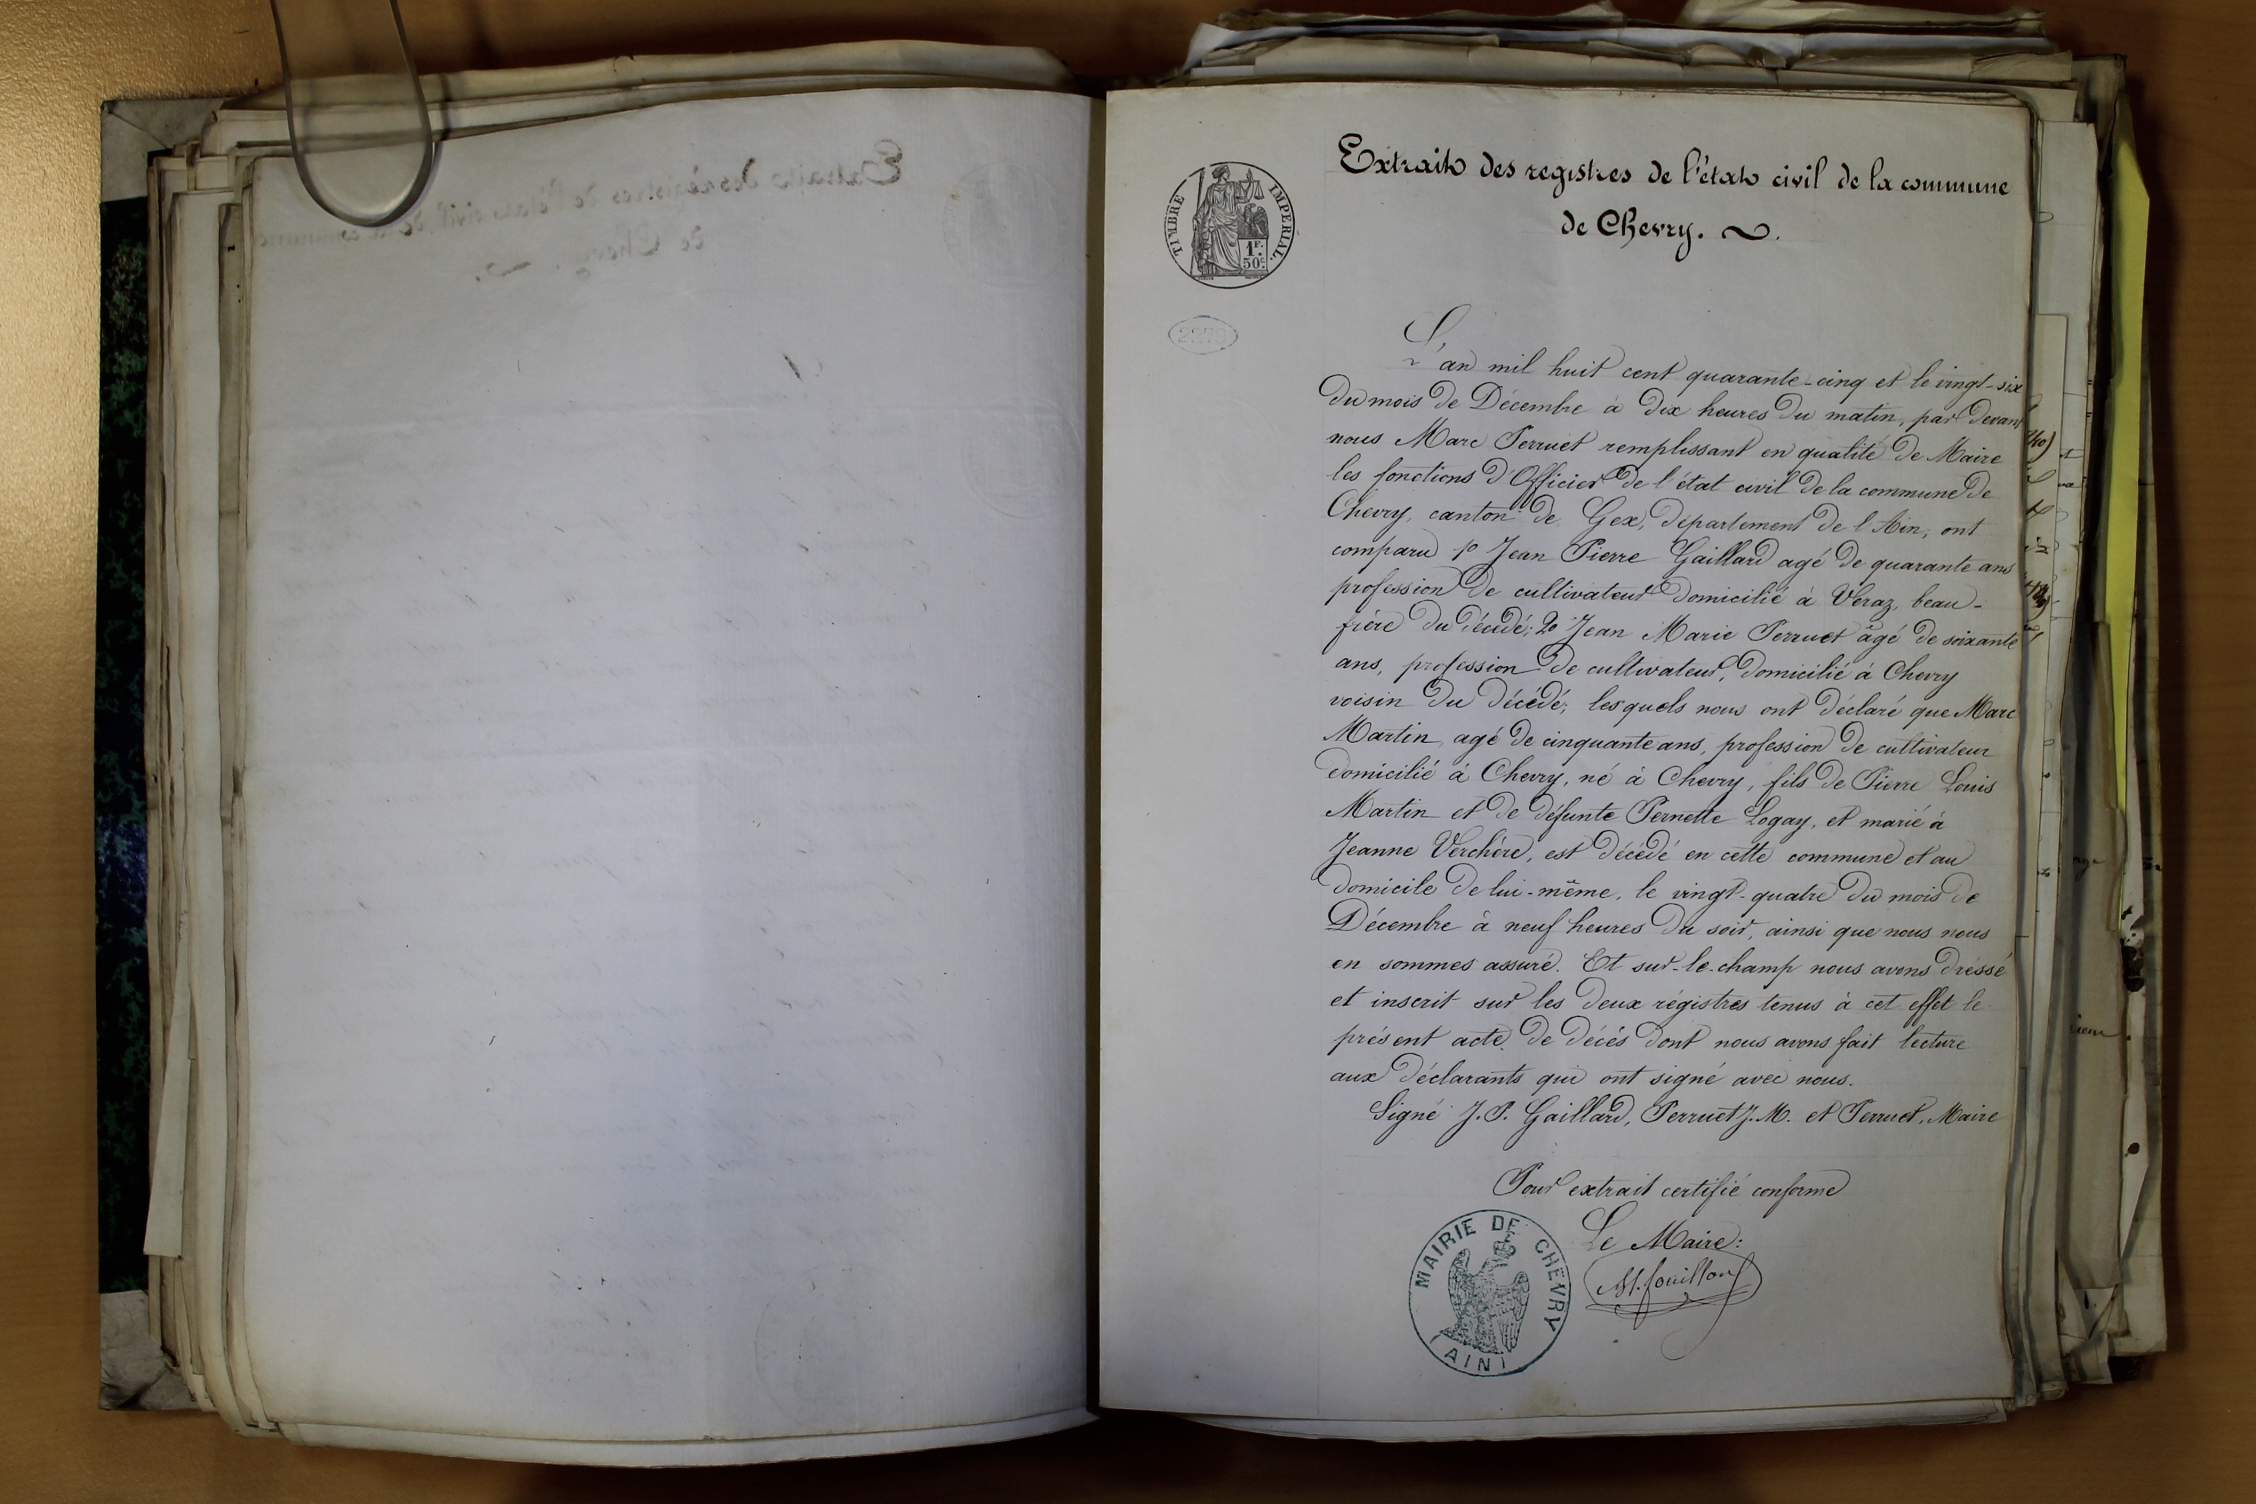 Extrait des registres de l'état civil de la commune
de Chevry.
TIMBRE IMPERIAL
1F.
50c.
L'an mil huit cent quarante-cinq et le vingt-six
du mois de Décembre à dix heures du matin, par devant
nous Marc Perruet remplissant en qualité de Maire
les fonctions d'Officier de l'état civil de la commune de
Chevry, canton de Gex, département de l'Ain, ont
comparu 1o Jean Pierre Gaillard agé de quarante ans
profession de cultivateur domicilié à Véraz, beau-
frère du décédé; 2o Jean Marie Perruet âgé de soixante
ans, profession de cultivateur, domicilié à Chevry
voisin du décédé; lesquels nous ont déclaré que Marc
Martin, agé de cinquante ans, profession de cultivateur
domicilié à Chevry, né à Chevry, fils de Pierre Louis
Martin et de défunte Pernette Logay, et marié à
Jeanne Verchère, est décédé en cette commune et au
domicile de lui-même, le vingt-quatre du mois de
Décembre à neuf heures du soir, ainsi que nous nous
en sommes assuré. Et sur-le-champ nous avons dréssé
et inscrit sur les deux régistres tenus à cet effet le
présent acte de décès dont nous avons fait lecture
aux déclarants qui ont signé avec nous.
Signé J. P. Gaillard, Perruet J. M. et Perruet, Maire
Pour extrait certifié conforme
Le Maire:
MAIRIE DE CHEVRY
(AIN)